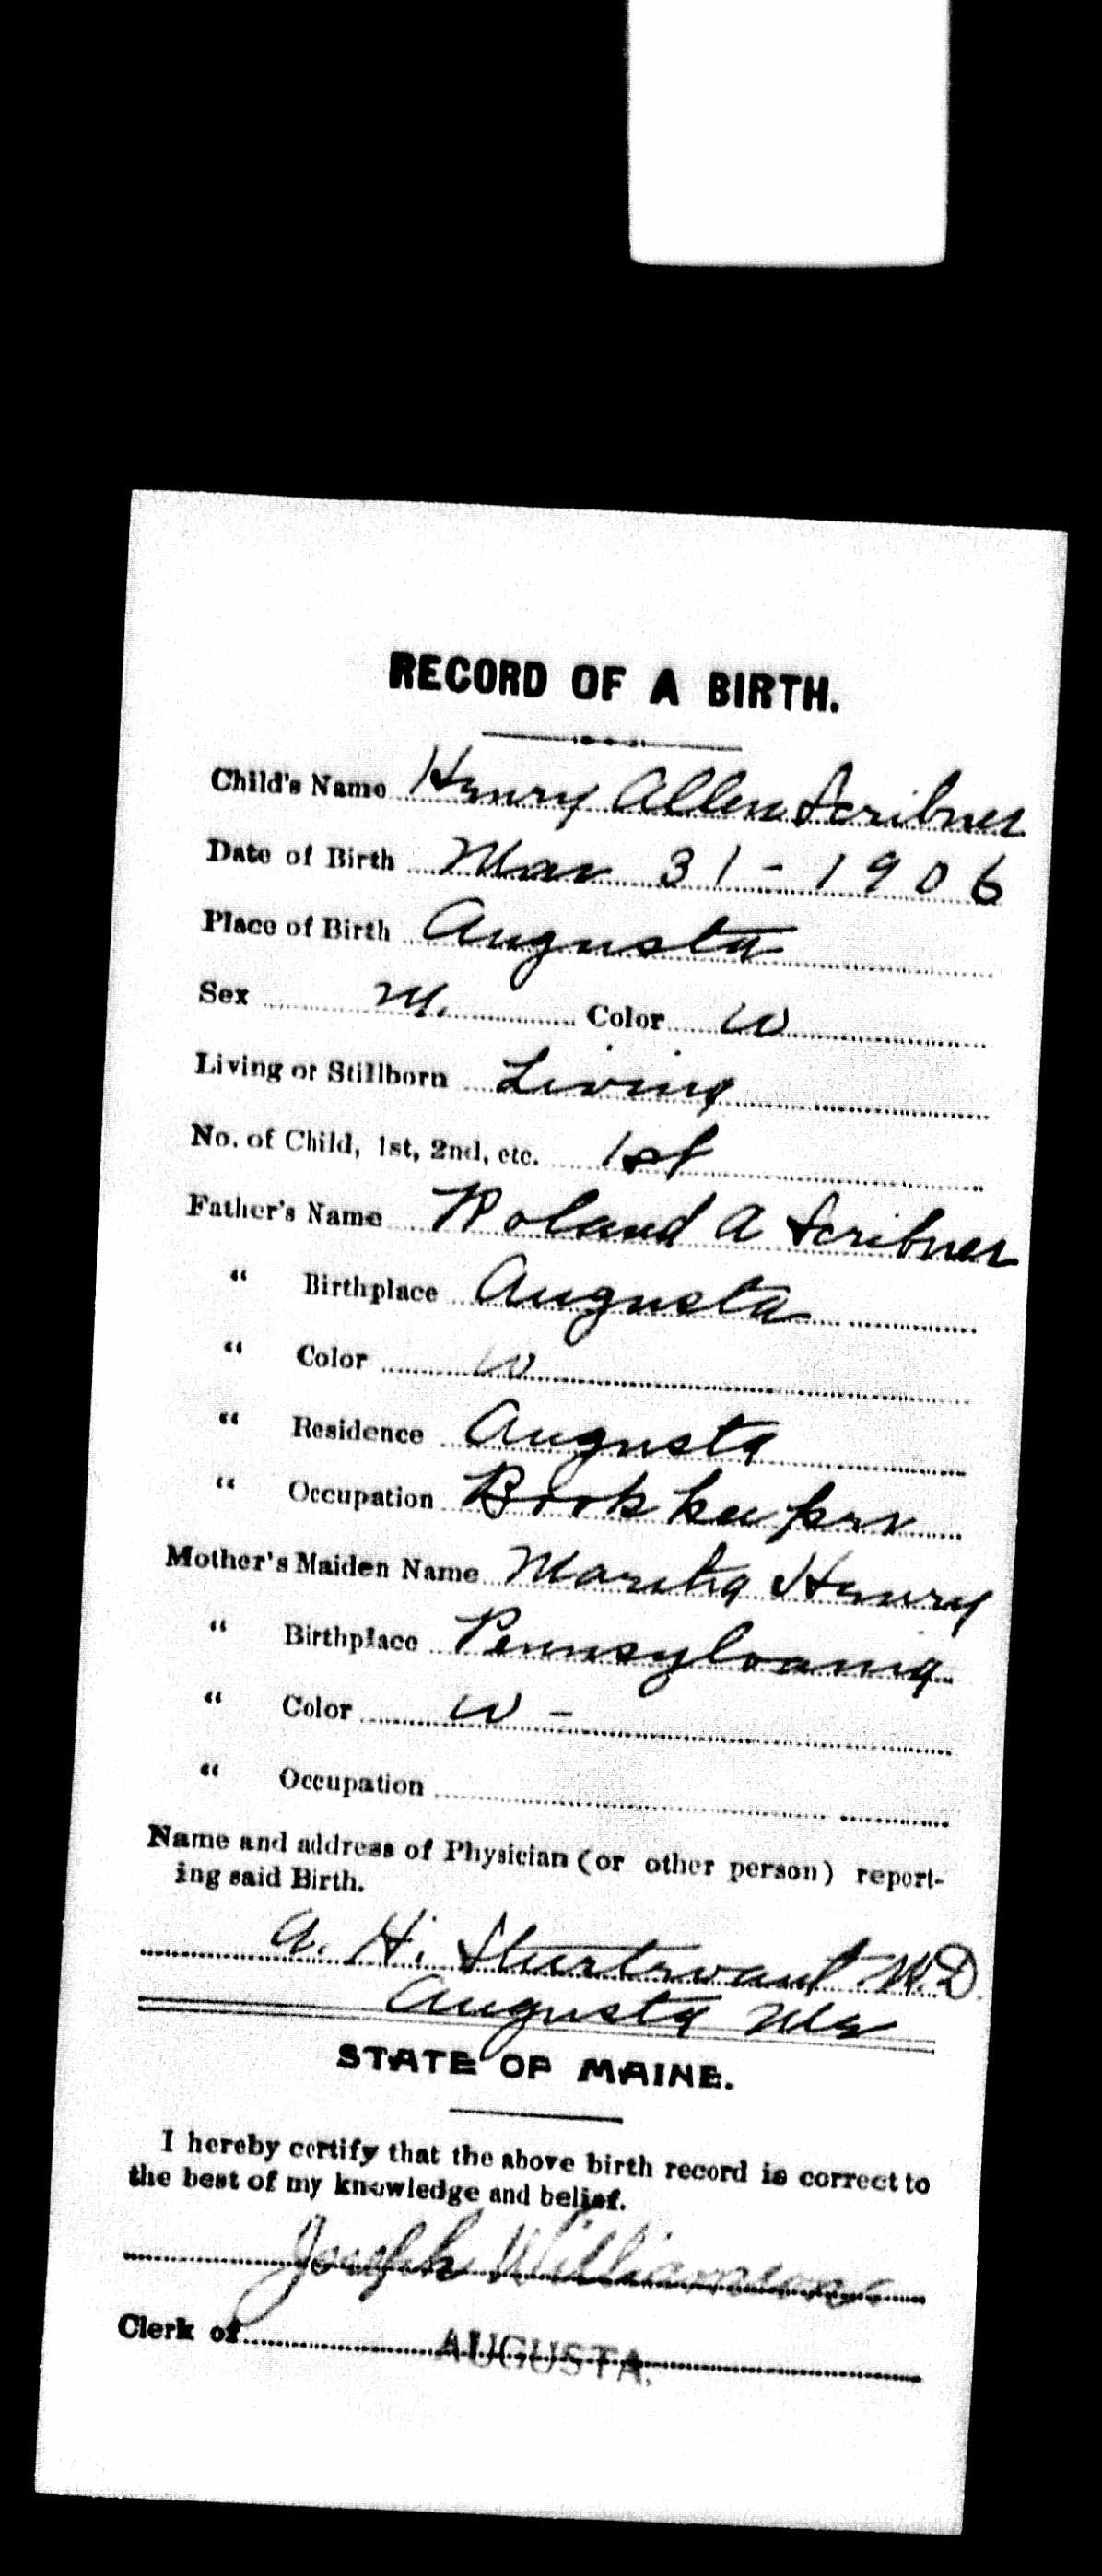 RECORD OF A BIRTH.
Child's Name Henry Allen Scribner
Date of Birth Mar 31 - 1906
Place of Birth Augusta
Sex M. Color W
Living or Stillborn Living
No. of Child, 1st, 2nd, etc. 1st
Father's Name Roland A Scribner
" Birthplace Augusta
" Color W
" Residence Augusta
" Occupation Bookkeeper
Mother's Maiden Name Martha Henry
" Birthplace Pennsylvania
" Color W -
" Occupation
Name and address of Physician (or other person) report-
ing said Birth.
A. H. Sturtevant M.D.
Augusta Me
STATE OF MAINE.
I hereby certify that the above birth record is correct to
the best of my knowledge and belief.
Joseph Williamson
Clerk of AUGUSTA.